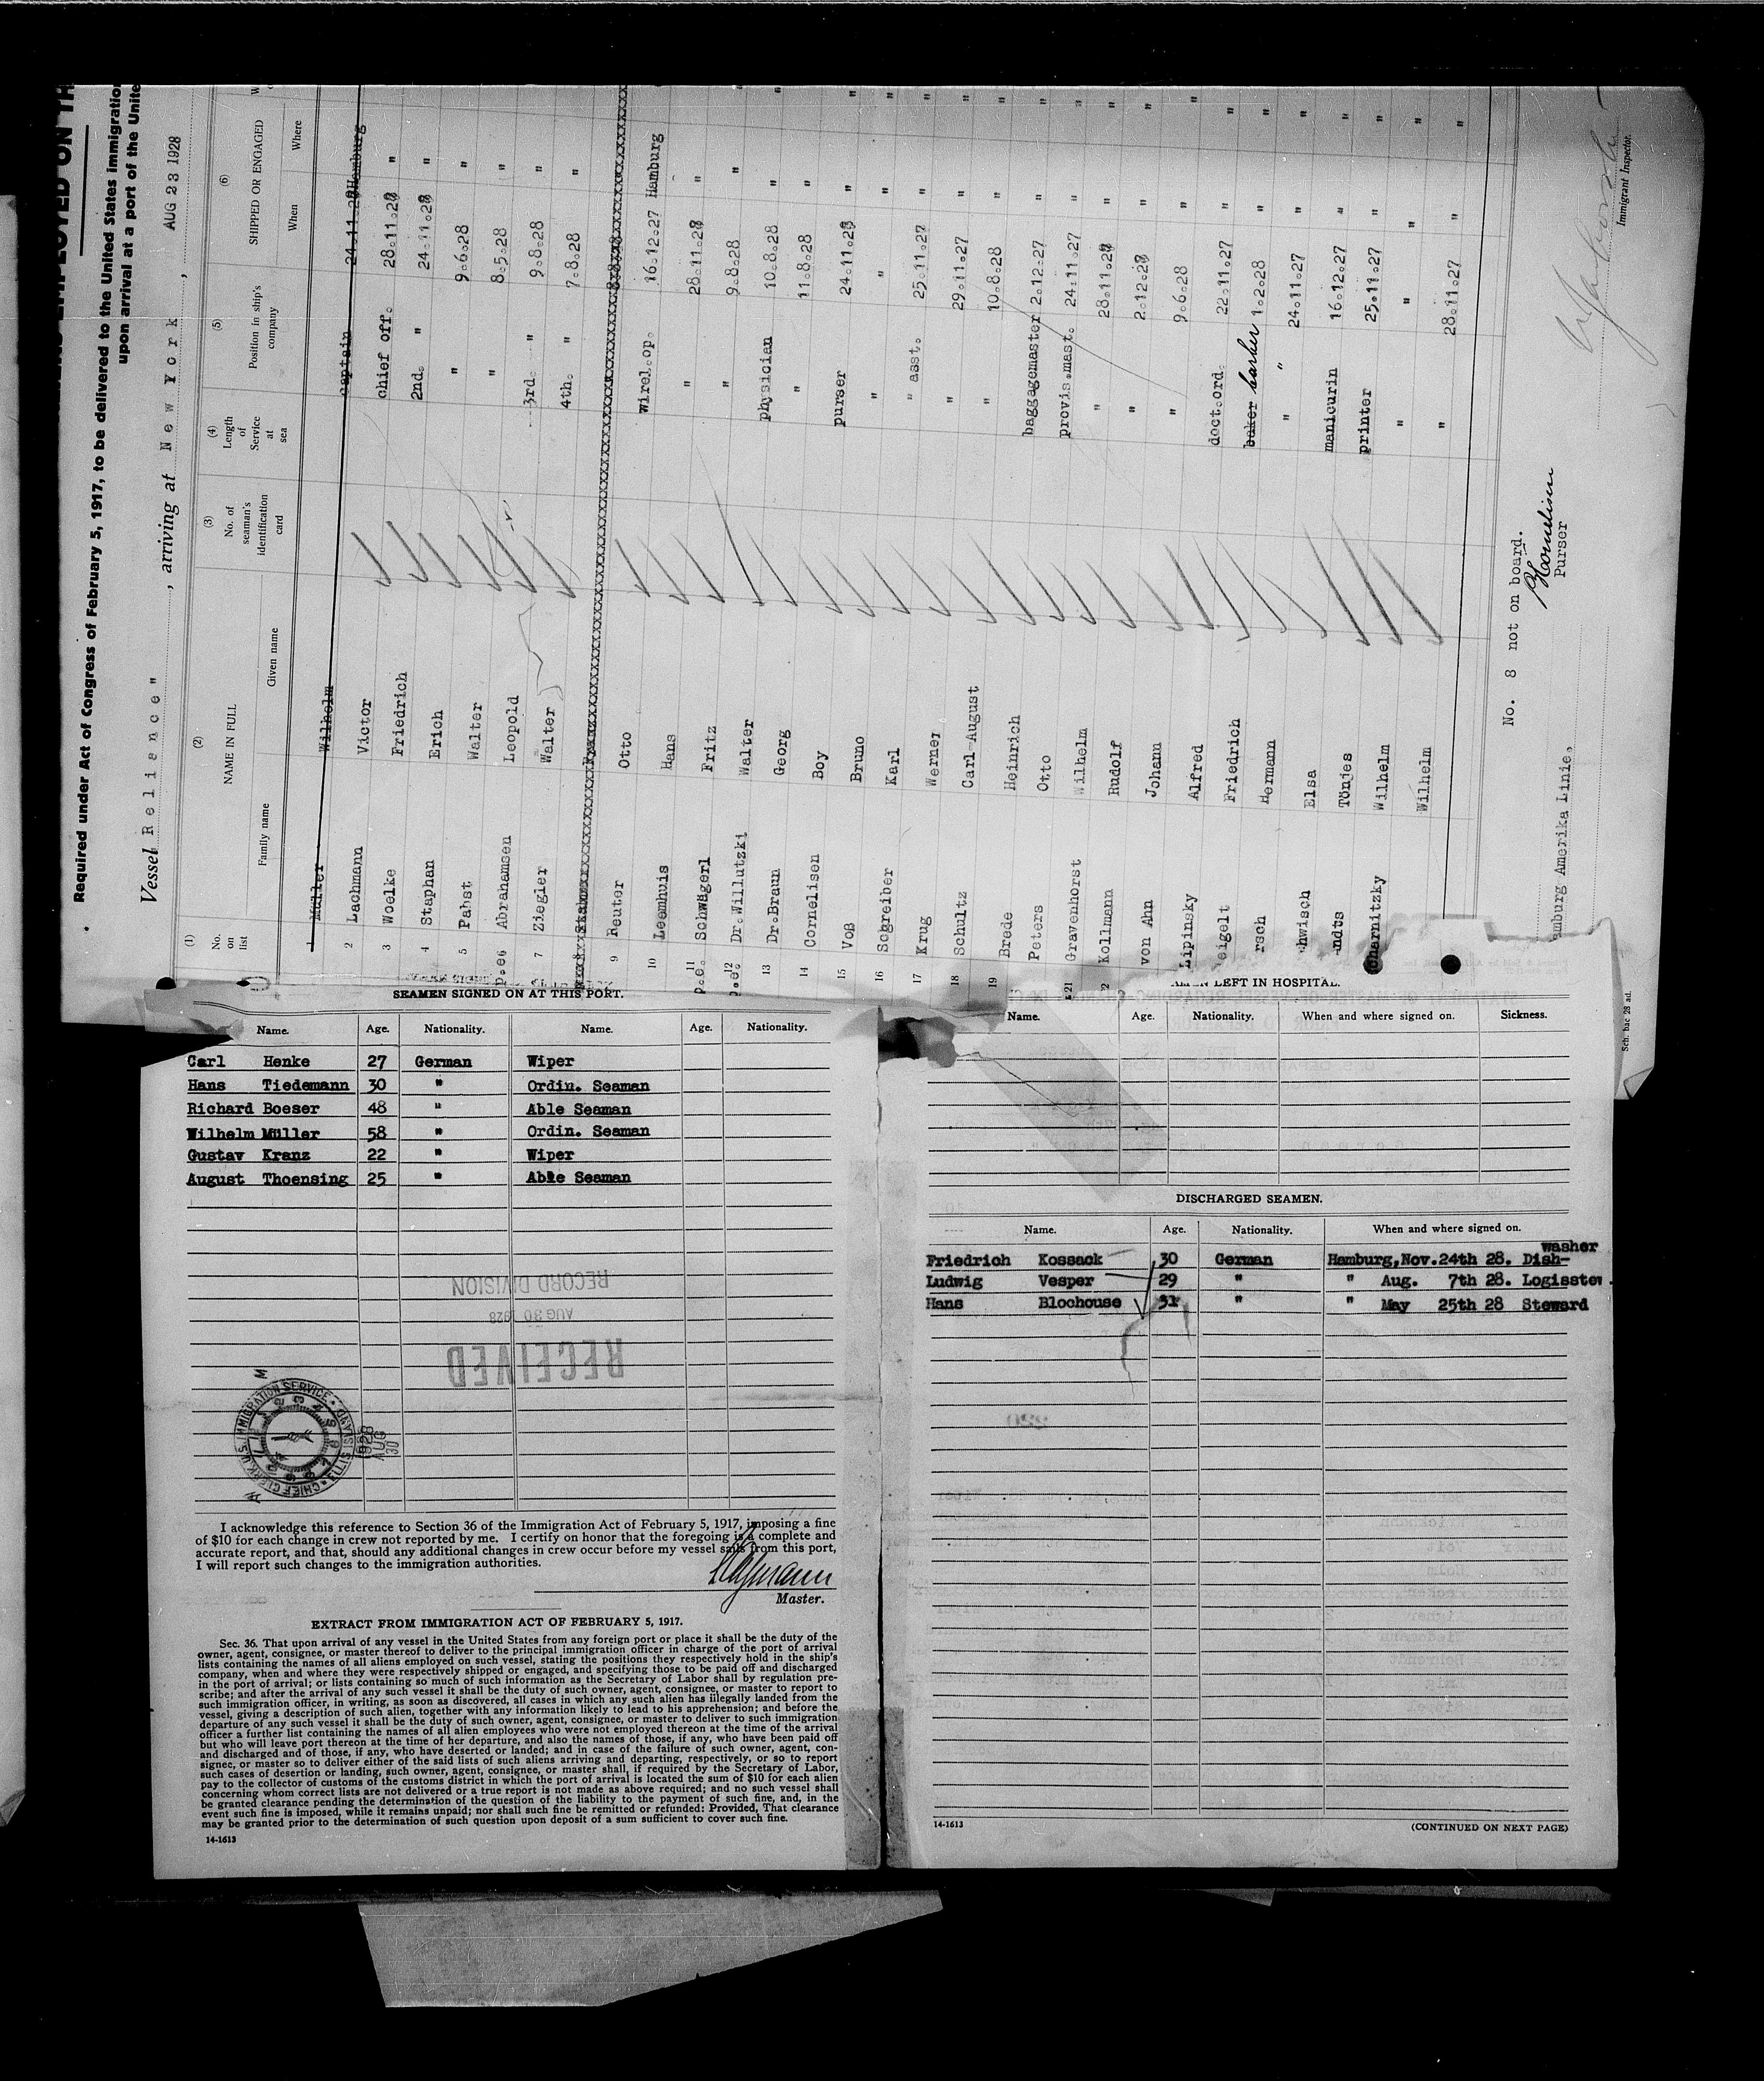 Required under Act of Congress of February 5, 1917, to be delivered to the United States immigration
upon arrival at a port of the Unite
Vessel Reliance", arriving at New York, AUG 23 1928
(1) (2) (3) (4) (5) (6)
No. on list
NAME IN FULL
Family name Given name
No. of seaman's identification card
Length of Service at sea
Position in ship's company
SHIPPED OR ENGAGED
When Where
1 Müller Wilhelm captain Hamburg
2 Lachmann Victor chief off. "
3 Woelke Friedrich 2nd. " "
4 Staphan Erich " 9.6.28 "
5 Pabst Walter " 8.5.28 "
p.e6 Abrahamsen Leopold 3rd. " 9.8.28 "
7 Ziegler Walter 4th. " 7.8.28 "
9 Reuter Otto Wirel.op. 16.12.27 Hamburg
10 Leemhuis Hans " "
p.e. 11 Schwägerl Fritz " 9.8.28 "
p.e. 12 Dr.Willutzki Walter physician 10.8.28 "
13 Dr.Braun Georg " 11.8.28 "
14 Cornelisen Boy purser "
15 Voß Bruno " " "
16 Schreiber Karl " asst. 25.11.27 "
17 Krug Werner " 29.11.27 "
18 Schultz Carl-August " 10.8.28 "
19 Brede Heinrich baggagemaster 2.12.27 "
Peters Otto provis.mast. 24.11.27 "
21 Gravenhorst Wilhelm " "
2 Kollmann Rudolf " "
von Ahn Johann " 9.6.28 "
Lipinsky Alfred doct.ord. 22.11.27 "
eigelt Friedrich baker barber 1.2.28 "
rsch Hermann " " 24.11.27 "
hwisch Elsa manicurin 16.12.27 "
ndts Tönjes printer 25.11.27 "
charnitzky Wilhelm " " "
Wilhelm " 28.11.27 "
No. 8 not on board.
Purser
amburg Amerika Linie.
Immigrant Inspector.
Sch: bac 28 ad.
SEAMEN SIGNED ON AT THIS PORT.
Name. Age. Nationality. Name. Age. Nationality.
Carl Henke 27 German Wiper
Hans Tiedemann 30 " Ordin. Seaman
Richard Boeser 48 " Able Seaman
Wilhelm Müller 58 " Ordin. Seaman
Gustav Kranz 22 " Wiper
August Thoensing 25 " Able Seaman
RECORD DIVISION
AUG 30 1928
RECEIVED
CHIEF CLERK U.S. IMMIGRATION SERVICE ELLIS ISLAND
1928 AUG 30
I acknowledge this reference to Section 36 of the Immigration Act of February 5, 1917, imposing a fine
of $10 for each change in crew not reported by me. I certify on honor that the foregoing is a complete and
accurate report, and that, should any additional changes in crew occur before my vessel sails from this port,
I will report such changes to the immigration authorities.
Master.
EXTRACT FROM IMMIGRATION ACT OF FEBRUARY 5, 1917.
Sec. 36. That upon arrival of any vessel in the United States from any foreign port or place it shall be the duty of the
owner, agent, consignee, or master thereof to deliver to the principal immigration officer in charge of the port of arrival
lists containing the names of all aliens employed on such vessel, stating the positions they respectively hold in the ship's
company, when and where they were respectively shipped or engaged, and specifying those to be paid off and discharged
in the port of arrival; or lists containing so much of such information as the Secretary of Labor shall by regulation pre-
scribe; and after the arrival of any such vessel it shall be the duty of such owner, agent, consignee, or master to report to
such immigration officer, in writing, as soon as discovered, all cases in which any such alien has illegally landed from the
vessel, giving a description of such alien, together with any information likely to lead to his apprehension; and before the
departure of any such vessel it shall be the duty of such owner, agent, consignee, or master to deliver to such immigration
officer a further list containing the names of all alien employees who were not employed thereon at the time of the arrival
but who will leave port thereon at the time of her departure, and also the names of those, if any, who have been paid off
and discharged and of those, if any, who have deserted or landed; and in case of the failure of such owner, agent, con-
signee, or master so to deliver either of the said lists of such aliens arriving and departing, respectively, or so to report
such cases of desertion or landing, such owner, agent, consignee, or master shall, if required by the Secretary of Labor,
pay to the collector of customs of the customs district in which the port of arrival is located the sum of $10 for each alien
concerning whom correct lists are not delivered or a true report is not made as above required; and no such vessel shall
be granted clearance pending the determination of the question of the liability to the payment of such fine, and, in the
event such fine is imposed, while it remains unpaid; nor shall such fine be remitted or refunded: Provided, That clearance
may be granted prior to the determination of such question upon deposit of a sum sufficient to cover such fine.
14-1613
LEFT IN HOSPITAL.
Name. Age. Nationality. When and where signed on. Sickness.
DISCHARGED SEAMEN.
Name. Age. Nationality. When and where signed on.
washer
Friedrich Kossack 30 German Hamburg,Nov.24th 28. Dish-
Ludwig Vesper 29 " " Aug. 7th 28. Logisstew.
Hans Blochouse 31 " " May 25th 28 Steward
14-1613
(CONTINUED ON NEXT PAGE)